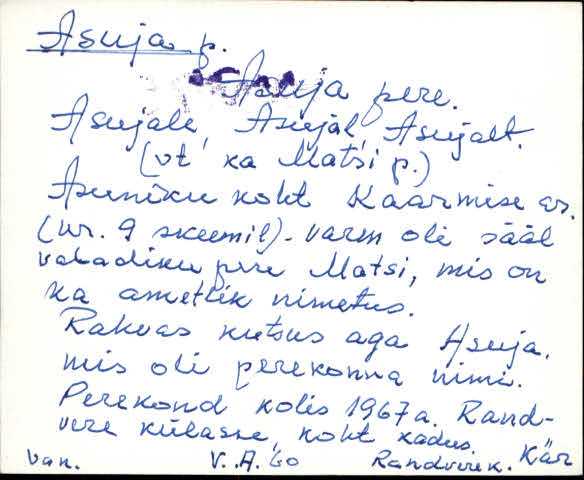 Asuja p.
Asuja pere.
Asujale, Asujal, Asujalt.
(vt ka Matsi p.)
Asuniku koht Kaarmise as.
(nr. 9 skeemil). Varem oli sääl
vabadiku pere Matsi, mis on
ka ametlik nimetus.
Rahvas kutsus aga Asuja,
mis oli perekonna nimi.
Perekond kolis 1967 a. Rand-
vere külasse, koht kadus.
Van. V. A. 60 Randvere k. Kär